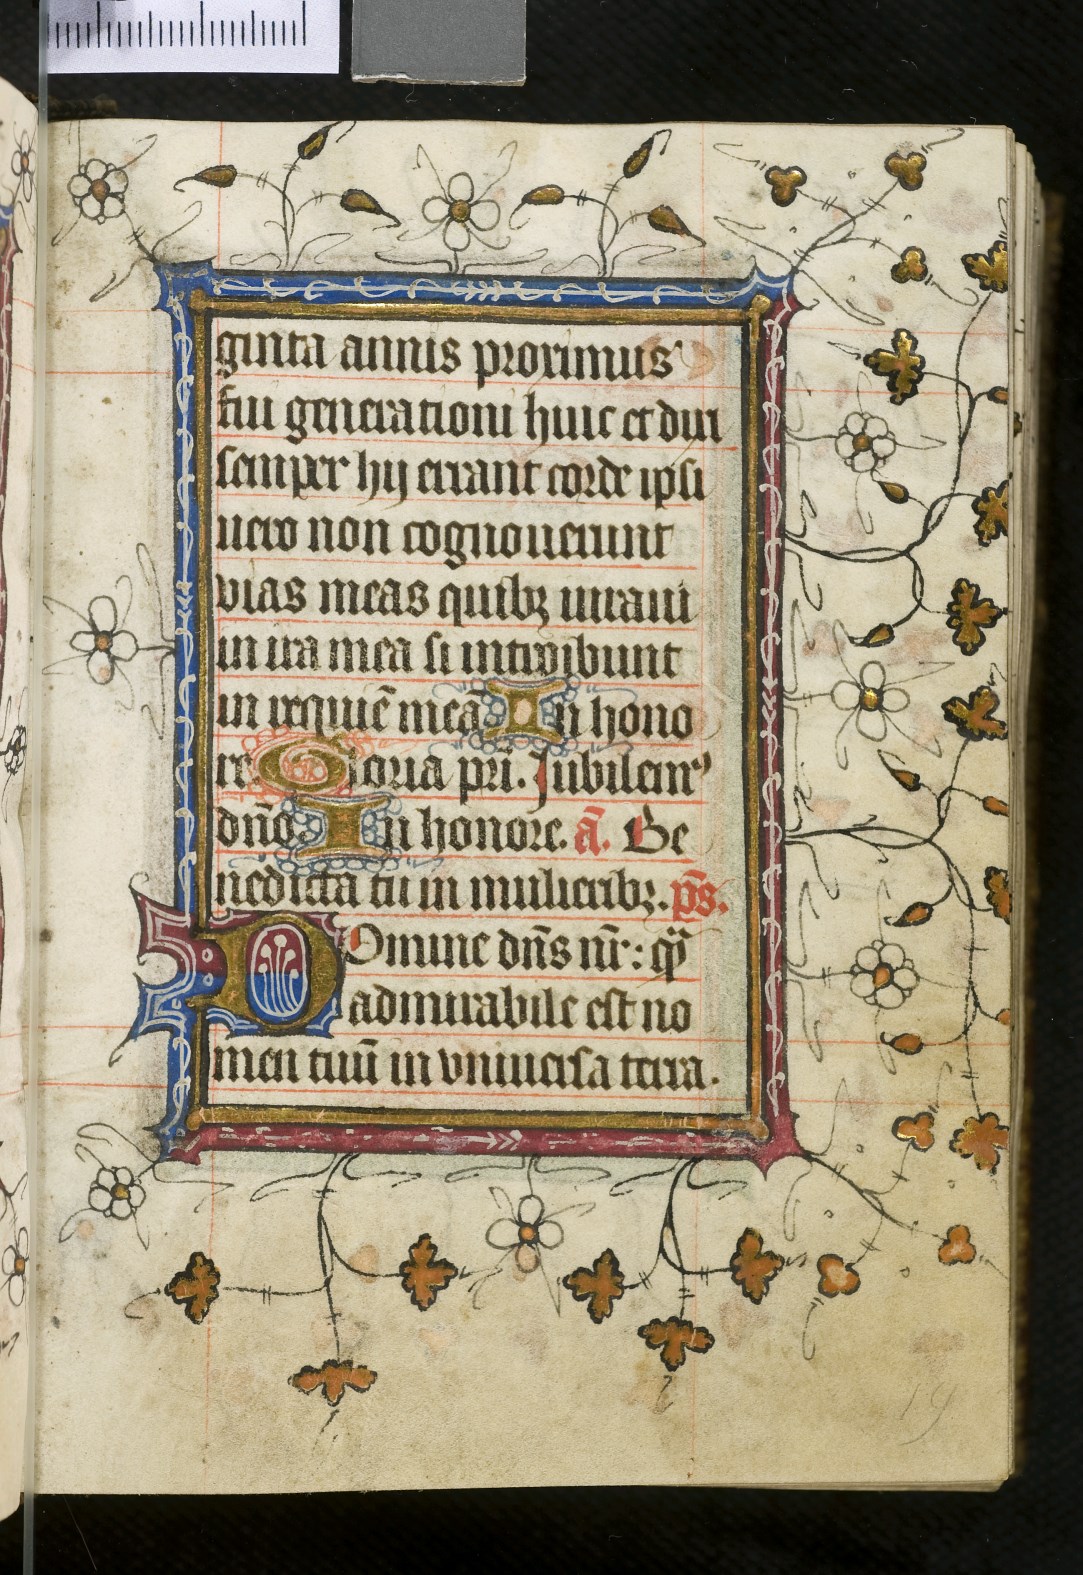 ginta annis proximus
fui generationi huic et dixi
semper hij errant corde ipsi
uero non cognouerunt
vias meas quibꝫ iuraui
in ira mea si introibunt
in requiē meā In hono
re Gloria pr̄i. Jubilemꝰ
dn̄o In honore. a᷉. Be
nedicta tu in mulieribꝫ. p̄s.
Domine dn̄s nr̄: qͣ̄
admirabile est no
men tuū in vniuersa terra.
19